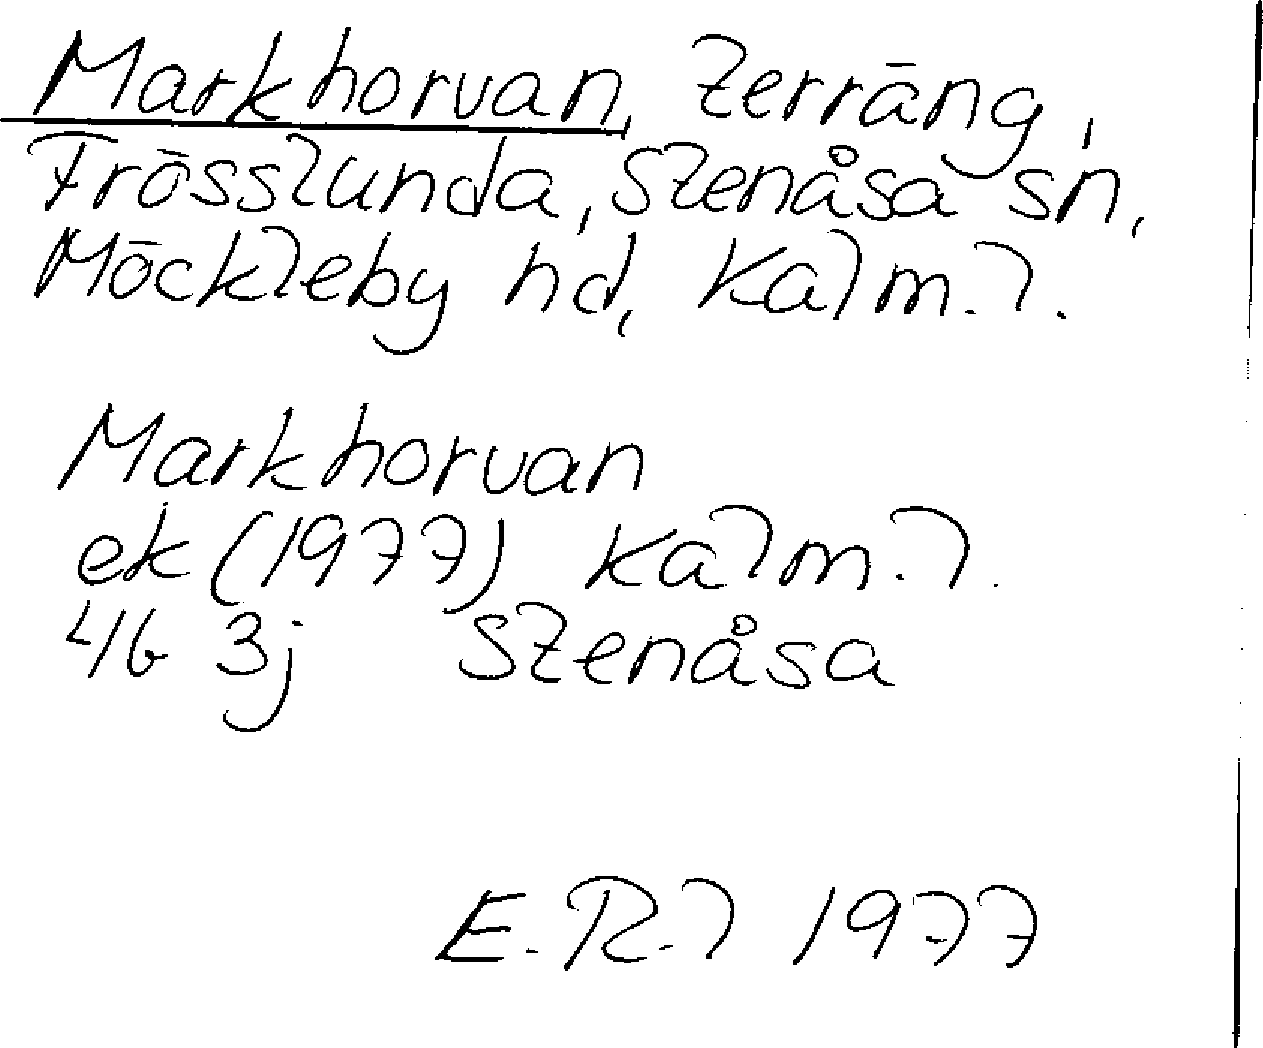 Markhorvan, terräng,
Frösslunda, Stenåsa sn,
Möckleby hd, Kalm. l.
Markhorvan
ek (1977) Kalm. l.
4G 3j Stenåsa
E. R. l 1977